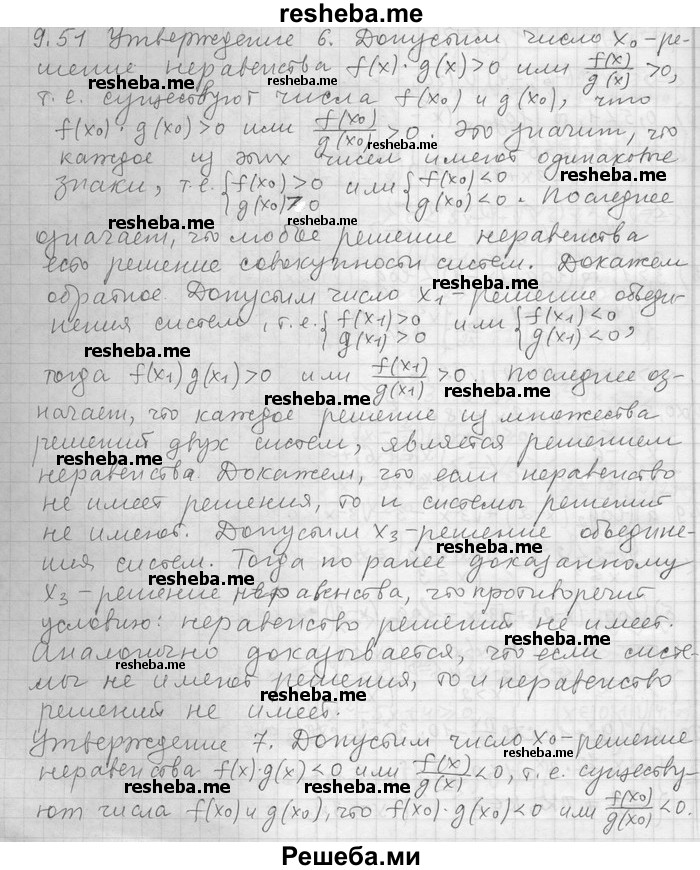 resheba.me
9.51 Утверждение 6. Допустим число x₀-ре-
шение неравенства f(x)·g(x)>0 или f(x)/g(x) >0,
resheba.me resheba.me
т.е. существуют числа f(x₀) и g(x₀), что
f(x₀)·g(x₀)>0 или f(x₀)/g(x₀) >0. Это значит, что
resheba.me
каждое из этих чисел имеют одинаковые
resheba.me resheba.me
знаки, т.е. {f(x₀)>0 g(x₀)>0 или {f(x₀)<0 g(x₀)<0. Последнее
resheba.me
означает, что любое решение неравенства
есть решение совокупности систем. Докажем
resheba.me
обратное. Допустим число x₁-решение объеди-
нения систем, т.е. {f(x₁)>0 g(x₁)>0 или {f(x₁)<0 g(x₁)<0,
resheba.me
тогда f(x₁)g(x₁)>0 или f(x₁)/g(x₁) >0. Последнее оз-
resheba.me
начает, что каждое решение из множества
решений двух систем, является решением
resheba.me
неравенства. Докажем, что если неравенство
не имеет решения, то и системы решений
не имеют. Допустим x₃-решение объедине-
resheba.me
ния систем. Тогда по ранее доказанному
resheba.me
x₃-решение неравенства, что противоречит
условию: неравенство решений не имеет.
resheba.me
Аналогично доказывается, что если систе-
resheba.me
мы не имеют решения, то и неравенство
решений не имеет.
Утверждение 7. Допустим число x₀-решение
resheba.me
неравенства f(x)·g(x)<0 или f(x)/g(x) <0, т.е. существу-
resheba.me
ют числа f(x₀) и g(x₀), что f(x₀)·g(x₀)<0 или f(x₀)/g(x₀) <0.
resheba.me
Решеба.ми